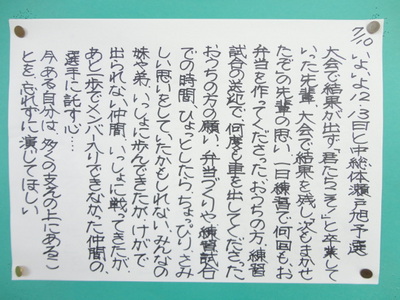 7/10
いよいよ12、3日と中総体瀬戸旭予選
大会で結果が出ず「君たちこそ」と卒業して
いった先輩、大会で結果を残し「次もまかせ
たぞ」の先輩の思い、一日練習で何回もお
弁当を作ってくださったおうちの方、練習
試合の送迎で、何度も車を出してくださった
おうちの方の願い、弁当づくりや練習試合
での時間、ひょっとしたら、ちょっぴりさみ
しい思いをしていたかもしれない、みんなの
妹や弟、いっしょに歩んできたが、けがで
出られない仲間、いっしょに戦ってきたが、
あと一歩でメンバー入りできなかった仲間の、
選手に託す心…
今、ある自分は、多くの支えの上にあるこ
とを、忘れずに演じてほしい